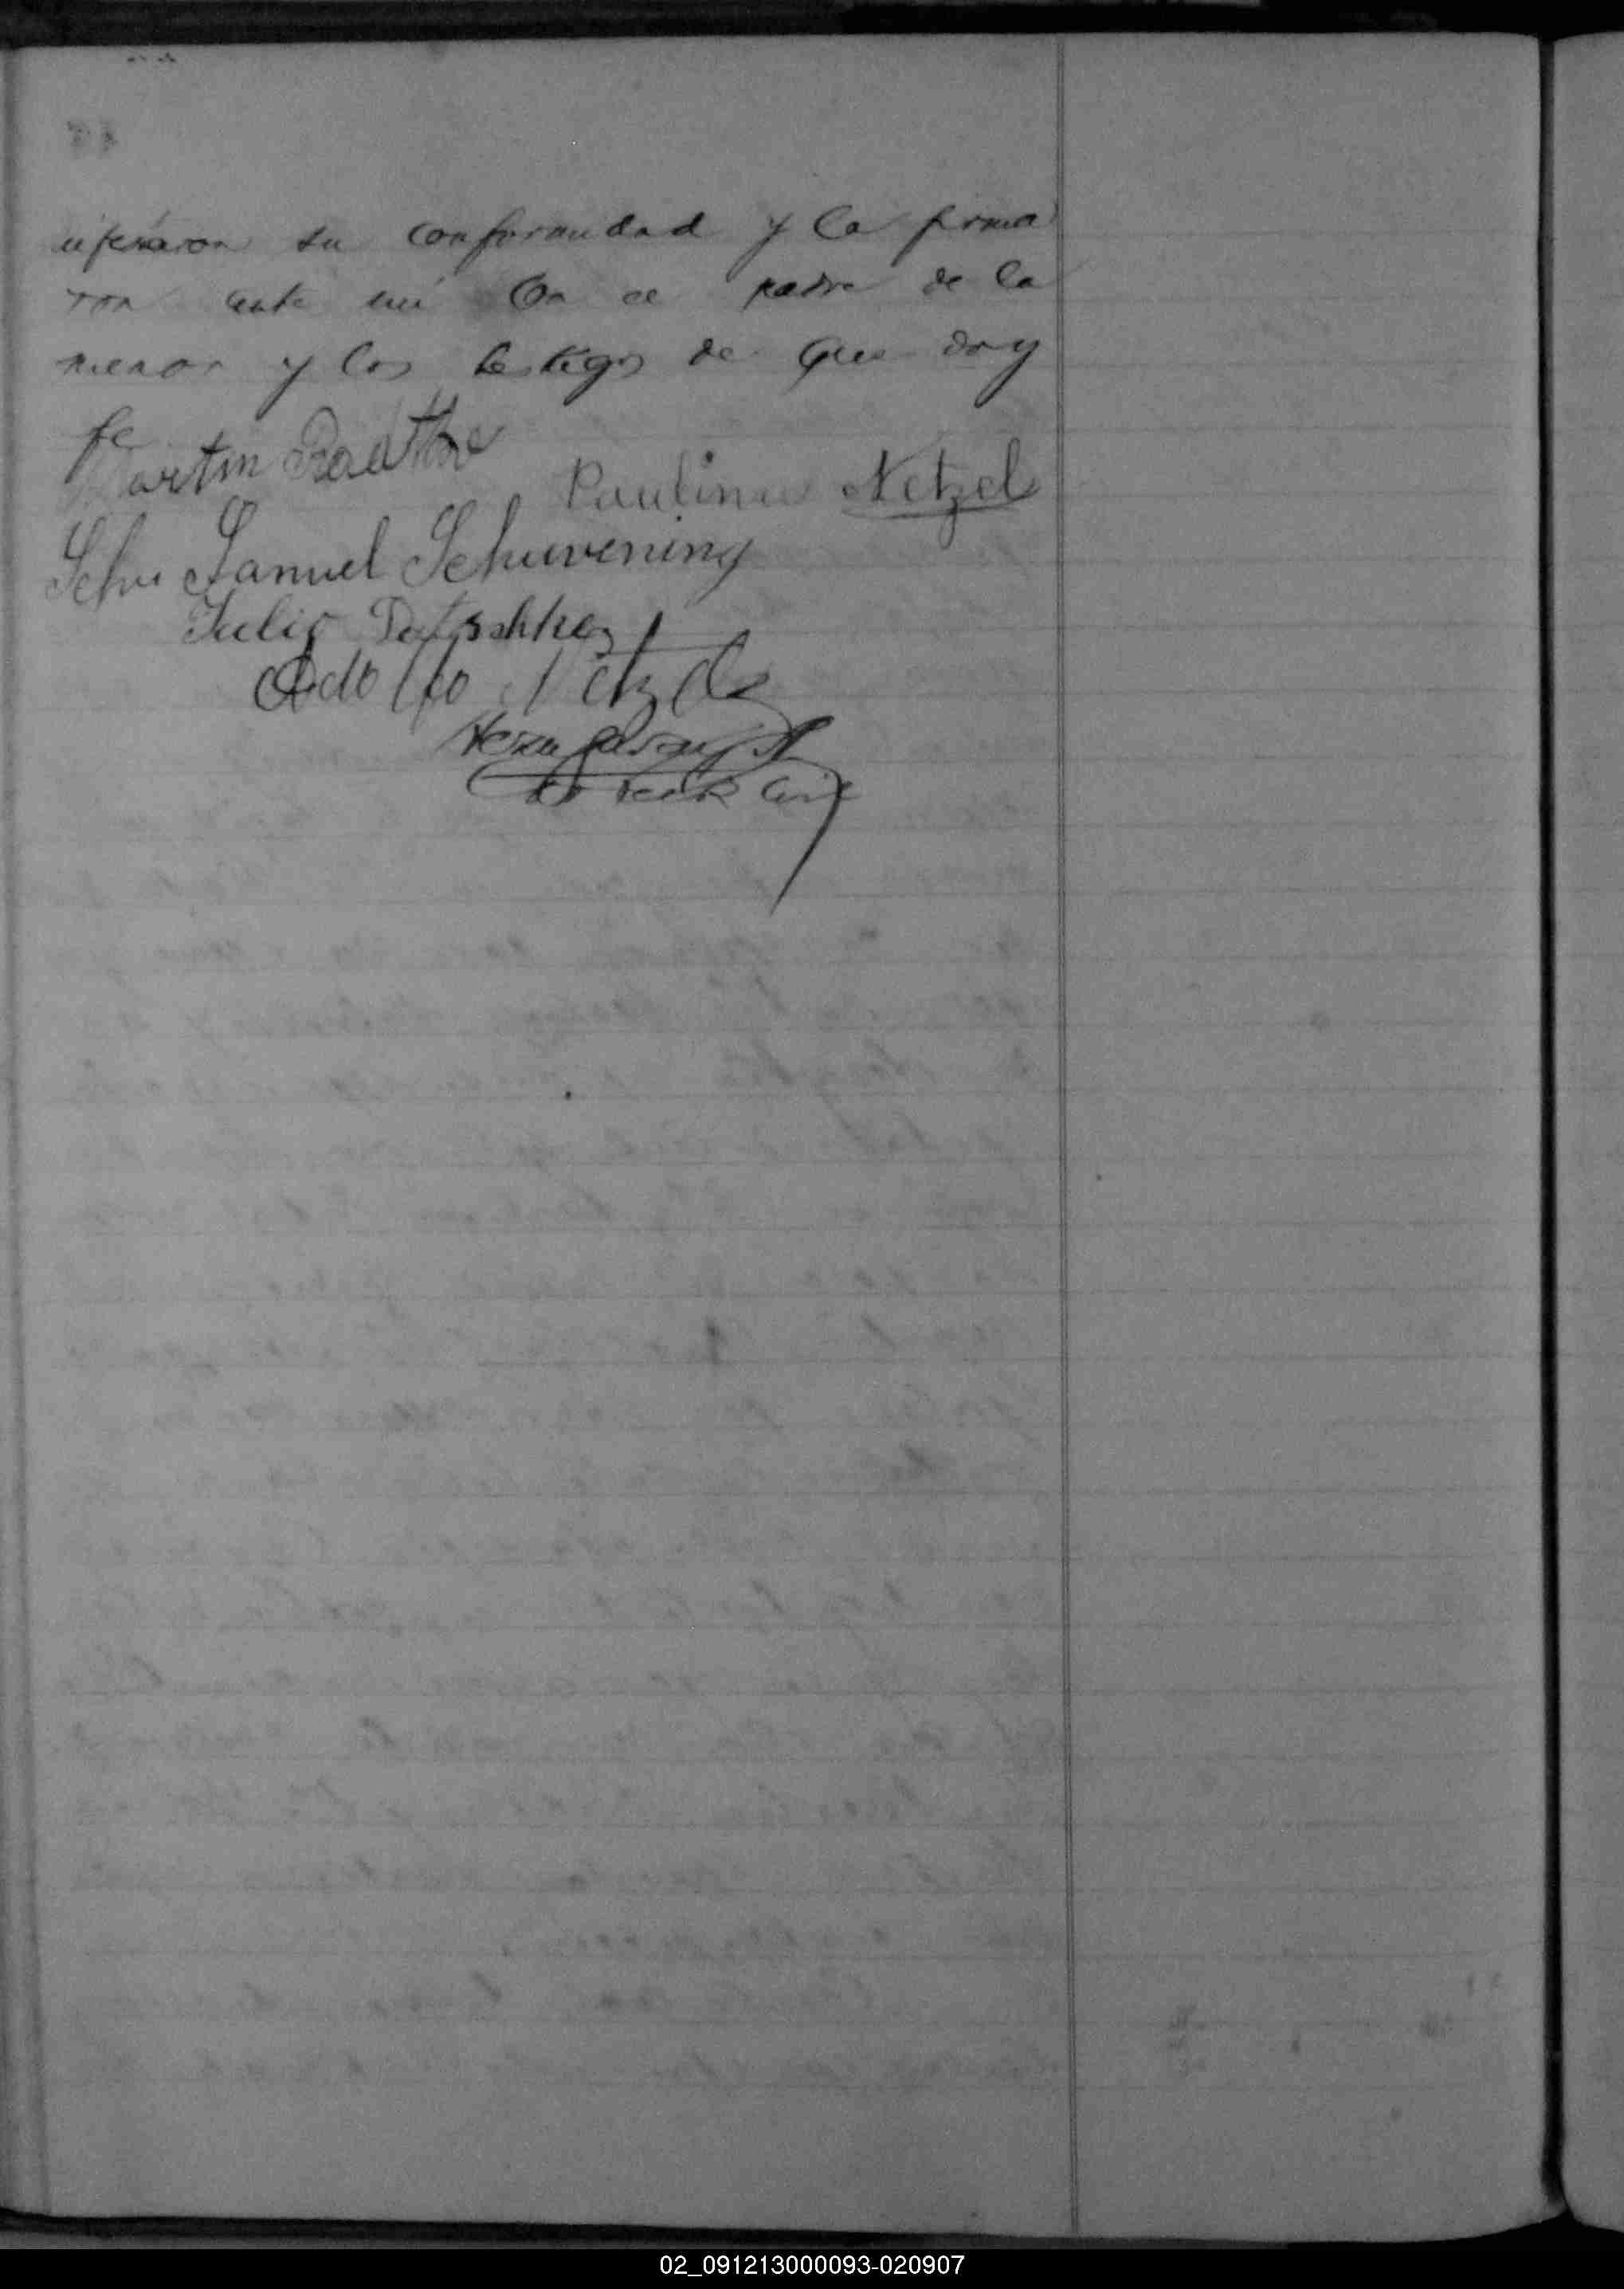 nifestaron su conformidad y la firma
ron ante mi con el padre de la
menor y los testigos de que doy
fe
Martin Raathe
Paulina Netzel
Schu Samuel Schuvening
Julio
Adolfo Netzel
02_091213000093-020907